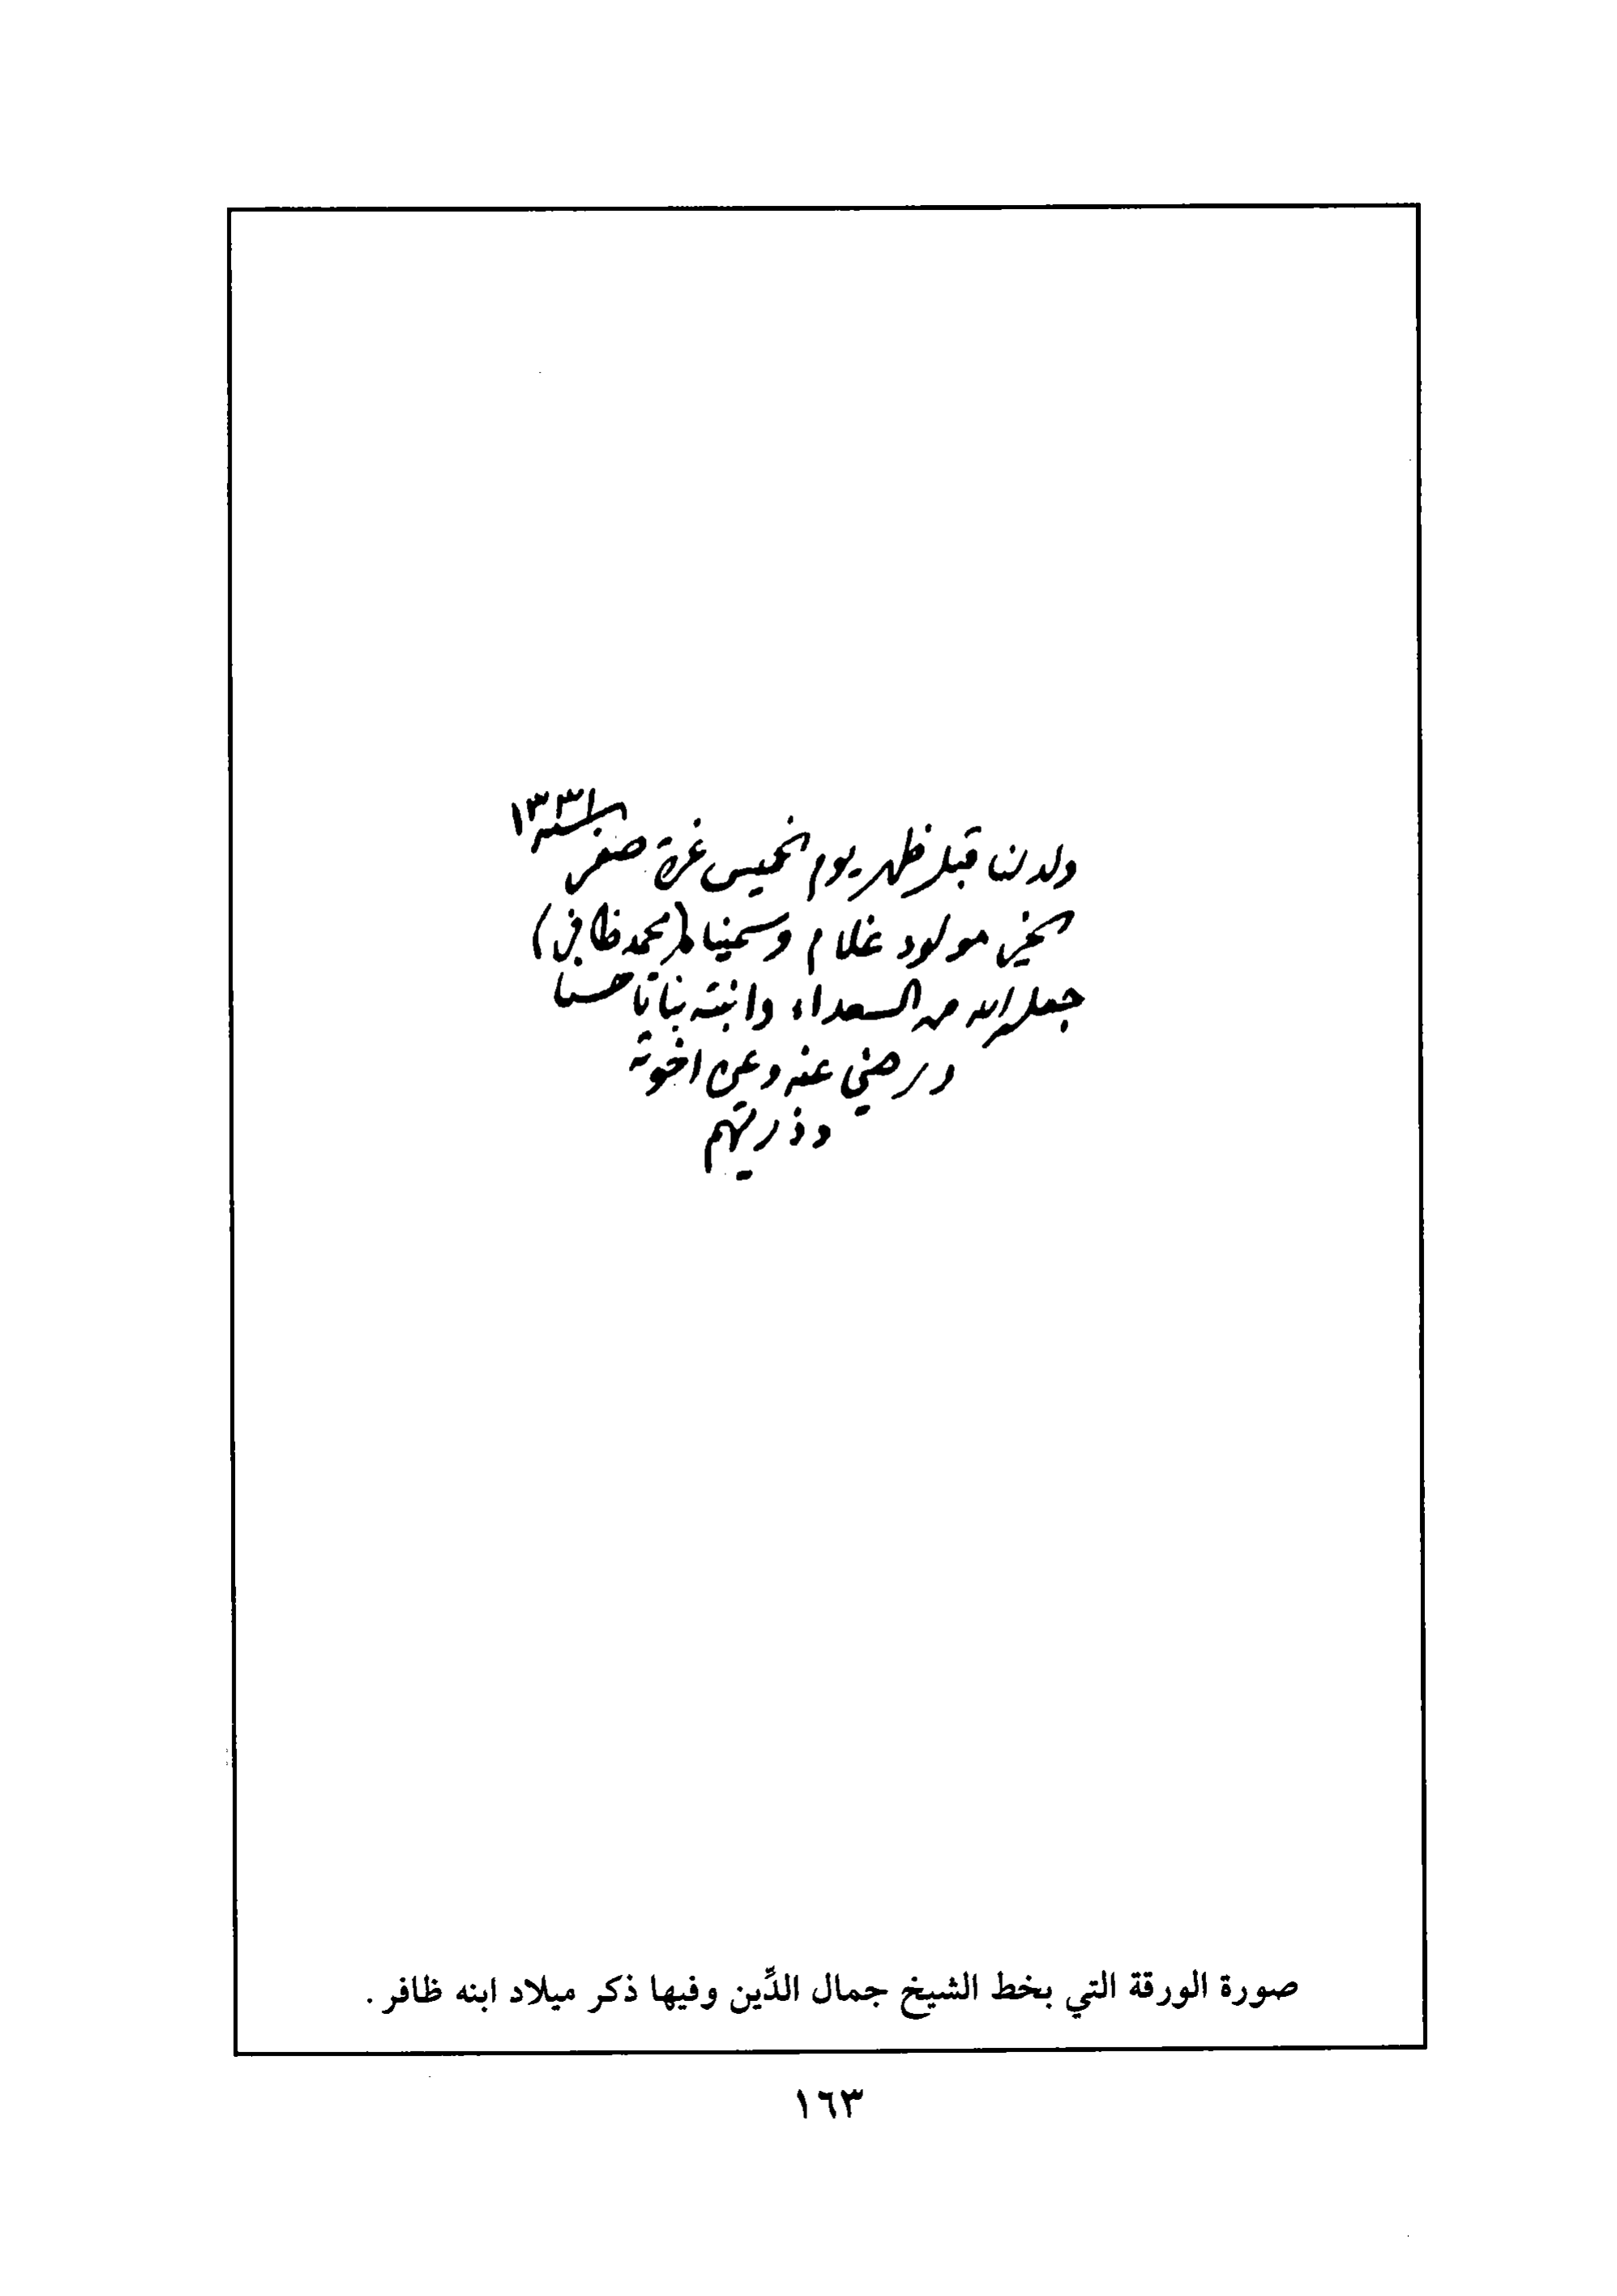 ولد لنا قبل ظهر يوم الخميس غرة صفر سنة ١٣٣١
الخير مولود غلام وسميناه (محمد ظافر)
جعله الله من السعداء وانبته نباتا حسنا
ورضي عنه وعن اخوته
وذريتهم
صورة الورقة التي بخط الشيخ جمال الدِّين وفيها ذكر ميلاد ابنه ظافر .
١٦٣